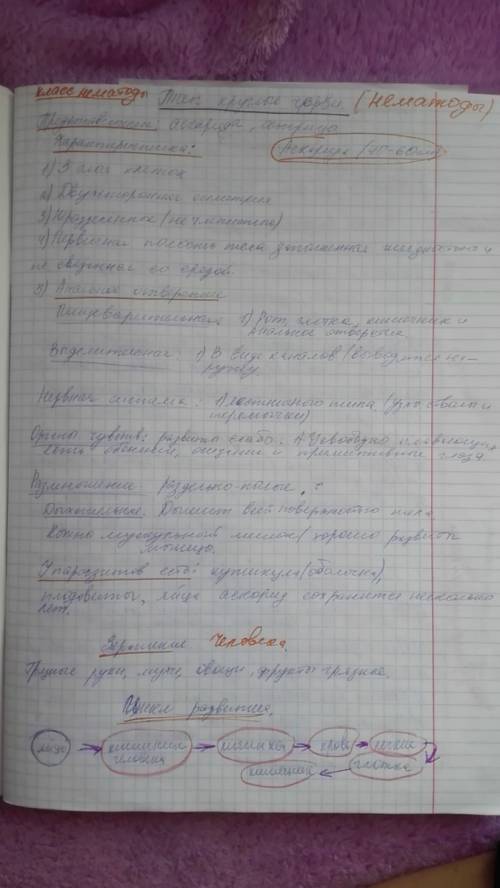 класс нематоды Тип: круглые черви (нематоды)
Представители: аскарида, острица
Характеристика: Аскарида
1) 3 слоя клеток
2) Двусторонняя симметрия
3) 
4) Первичная полость тела заполненная жидкостью и
не связанная со средой.
5) Анальное отверстие
Пищеварительная 1) Рот, глотка, кишечник и
анальное отверстие
Выделительная: 1) В виде каналов
Нервная система: Лестничного типа (узлы стволы и
перемычки)
Органы чувств: развиты слабо. А у свободно
есть обоняния, осязания и примитивные глаза.
Размножение: Раздельно-полые.
Дыхательная. Дышит всей поверхностью тела
Кожно мускульный мешок / хорошо развиты
мышцы.
У паразитов есть: кутикула (оболочка),
плодовиты, яйца аскарид сохраняются несколько
лет.
Заражение человека.
Грязные руки, мухи, овощи, фрукты грязные.
Цикл развития.
яйцо кишечник человека личинка кровь легкие
кишечник глотка